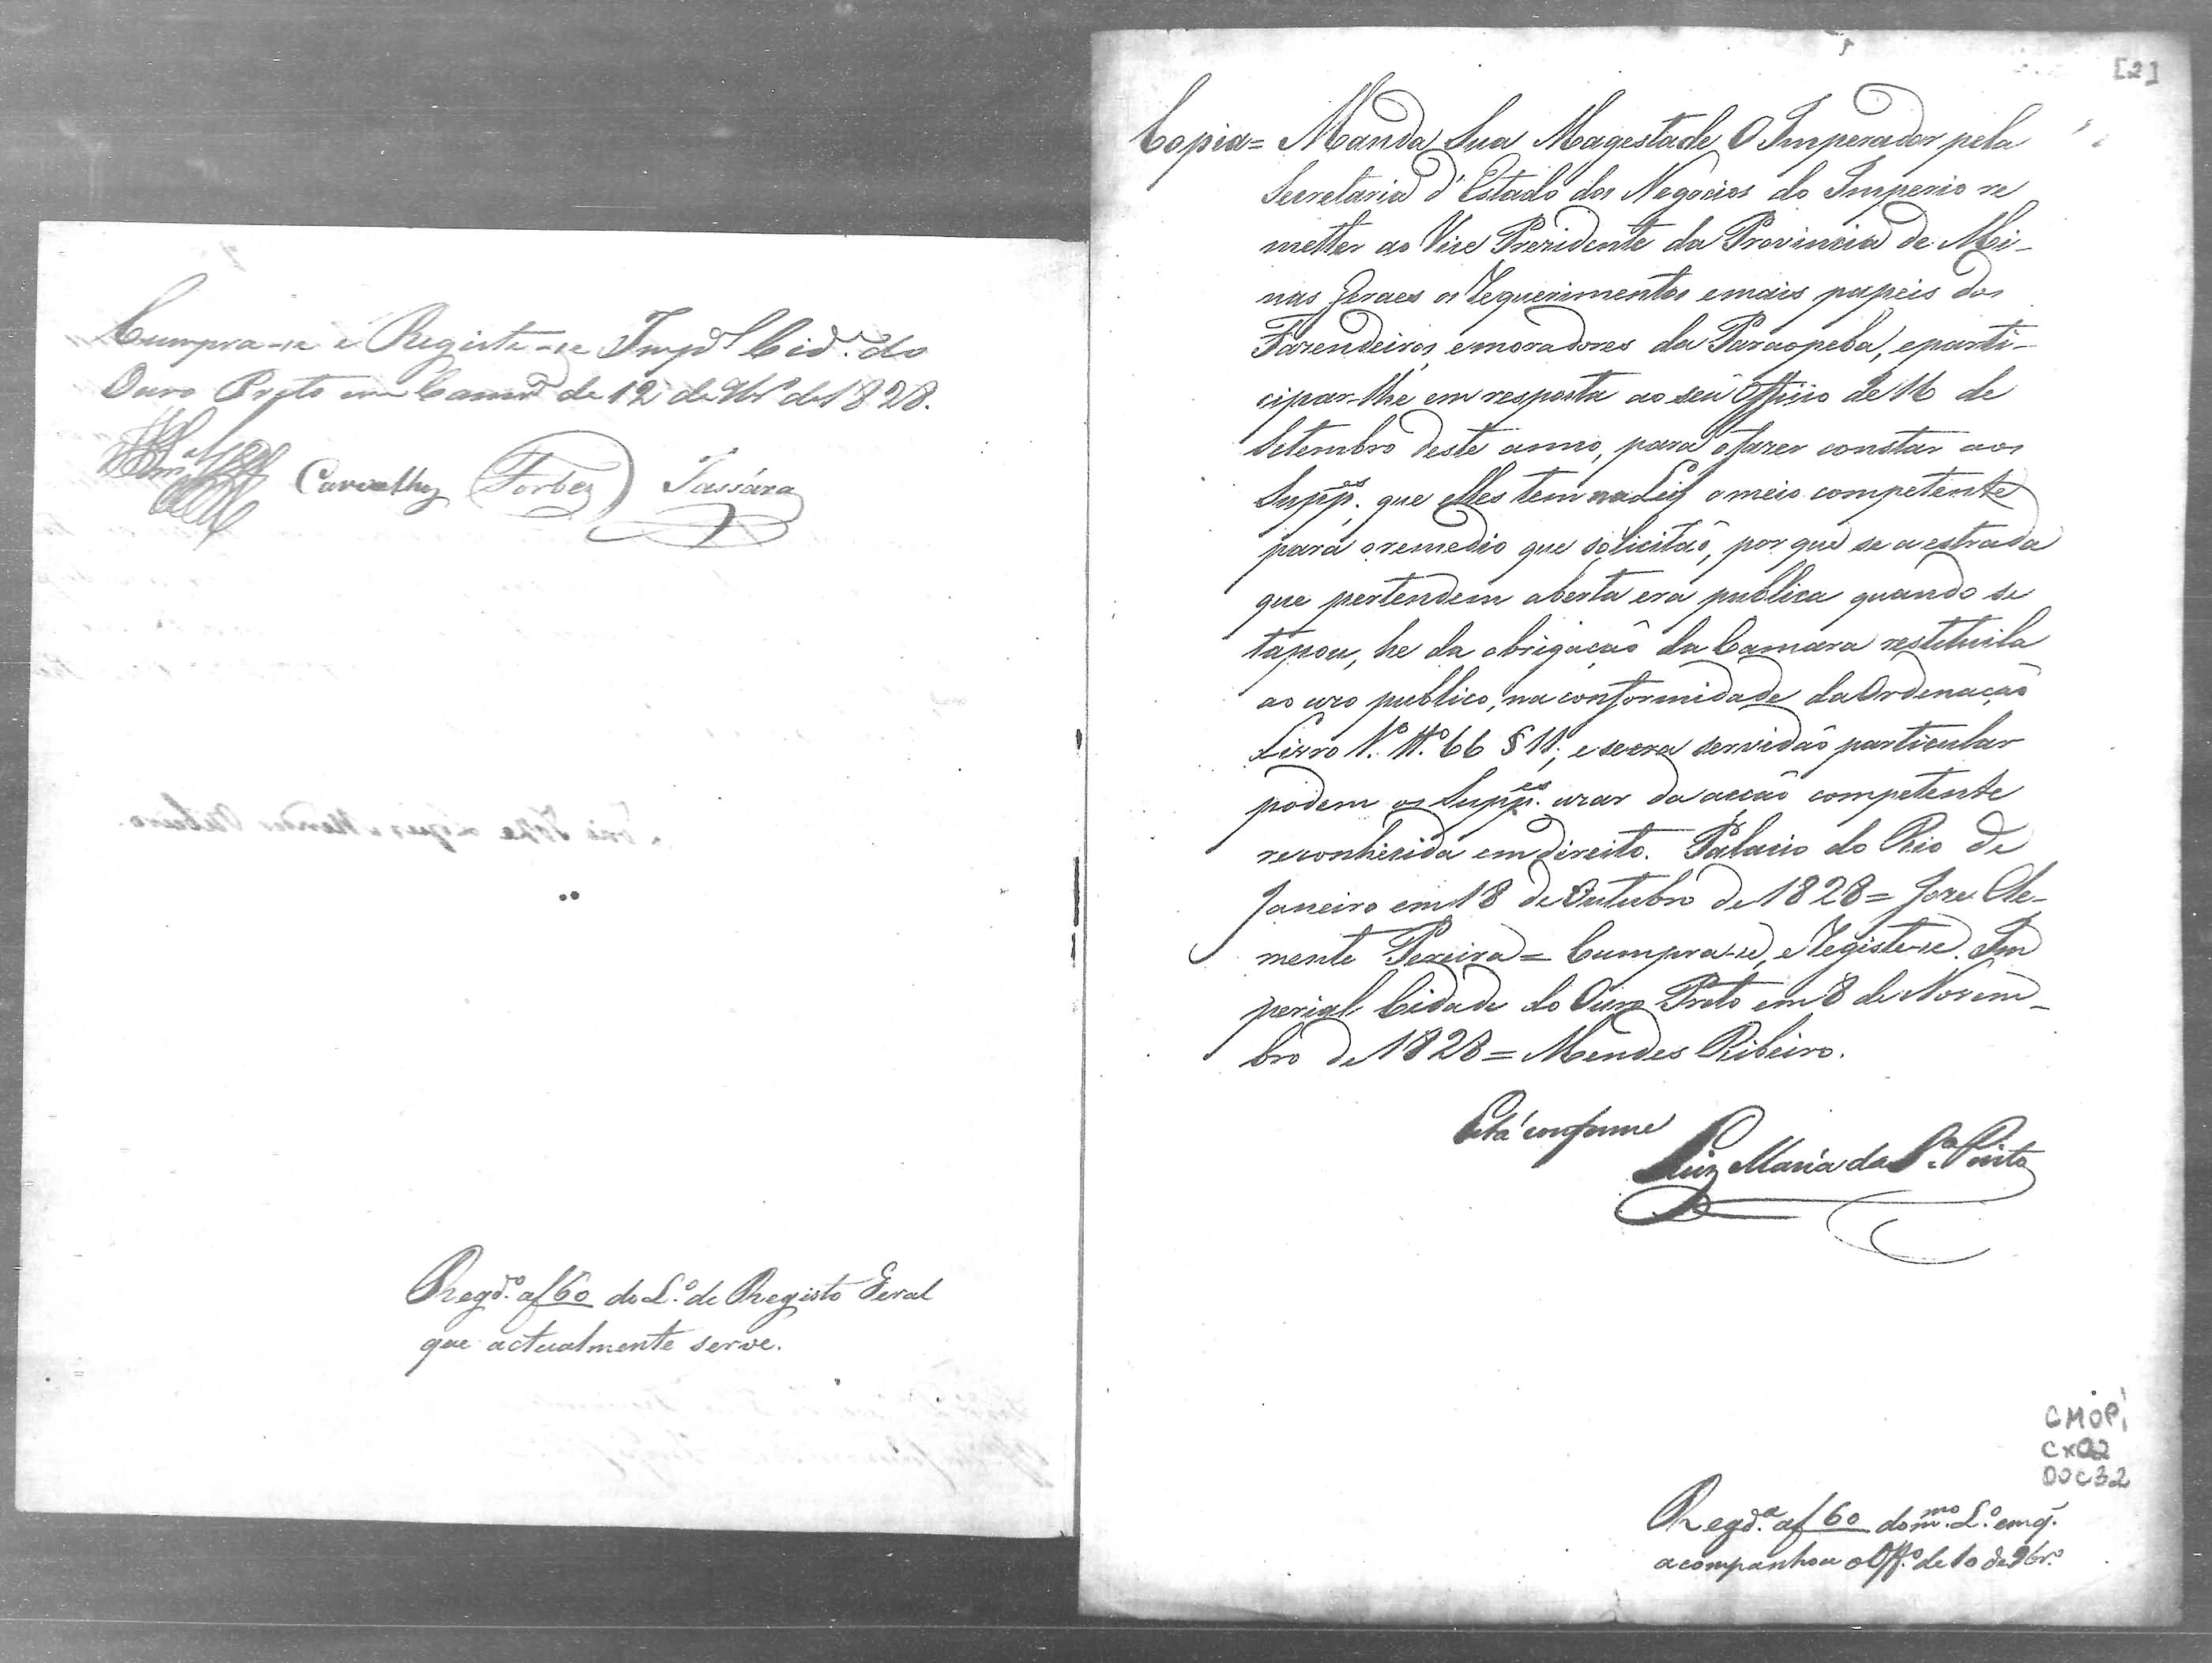 Cumpra-se e Registe-se Imp.l Cid.e do
Ouro Preto em Camr.a de 12 de 9br.o de 1828.
Carvalho Forbes Tassára
Regd.o a f 60 do L.o de Registo Geral
que actualmente serve.
[2]
Copia = Manda Sua Magestade O Imperador pela
Secretaria d'Estado dos Negocios do Imperio re
metter ao Vice Prezidente da Provincia de Mi-
nas Geraes os Requerimentos e mais papeis dos
Fazendeiros, e moradores da Paraopeba, e parti-
cipar-lhe em resposta ao seu Officio de 16 de
Setembro deste anno, para o fazer constar aos
Supp.es que elles tem na Lei o meio competente
para o remedio que solicitão, por que se a estrada
que pertendem aberta era publica quando se
tapou, he da obrigação da Camara restituila
ao uzo publico, na conformidade da Ordenação
Livro 1.o tt.o 66 § 11, e se era servidão particular
podem os Supp.es uzar da acção competente
reconhecida em direito. Palacio do Rio de
Janeiro em 18 de Outubro de 1828 = Joze Cle-
mente Pereira = Cumpra-se, e Registe-se. Im
perial Cidade do Ouro Preto em 8 de Novem-
bro de 1828 = Mendes Ribeiro.
Está conforme
Luiz Maria da S.a Pinto
CMOP
CX02
DOC32
Regd.a a f 60 do m.mo L.o em q.
acompanhou o Off.o de 10 de 9br.o